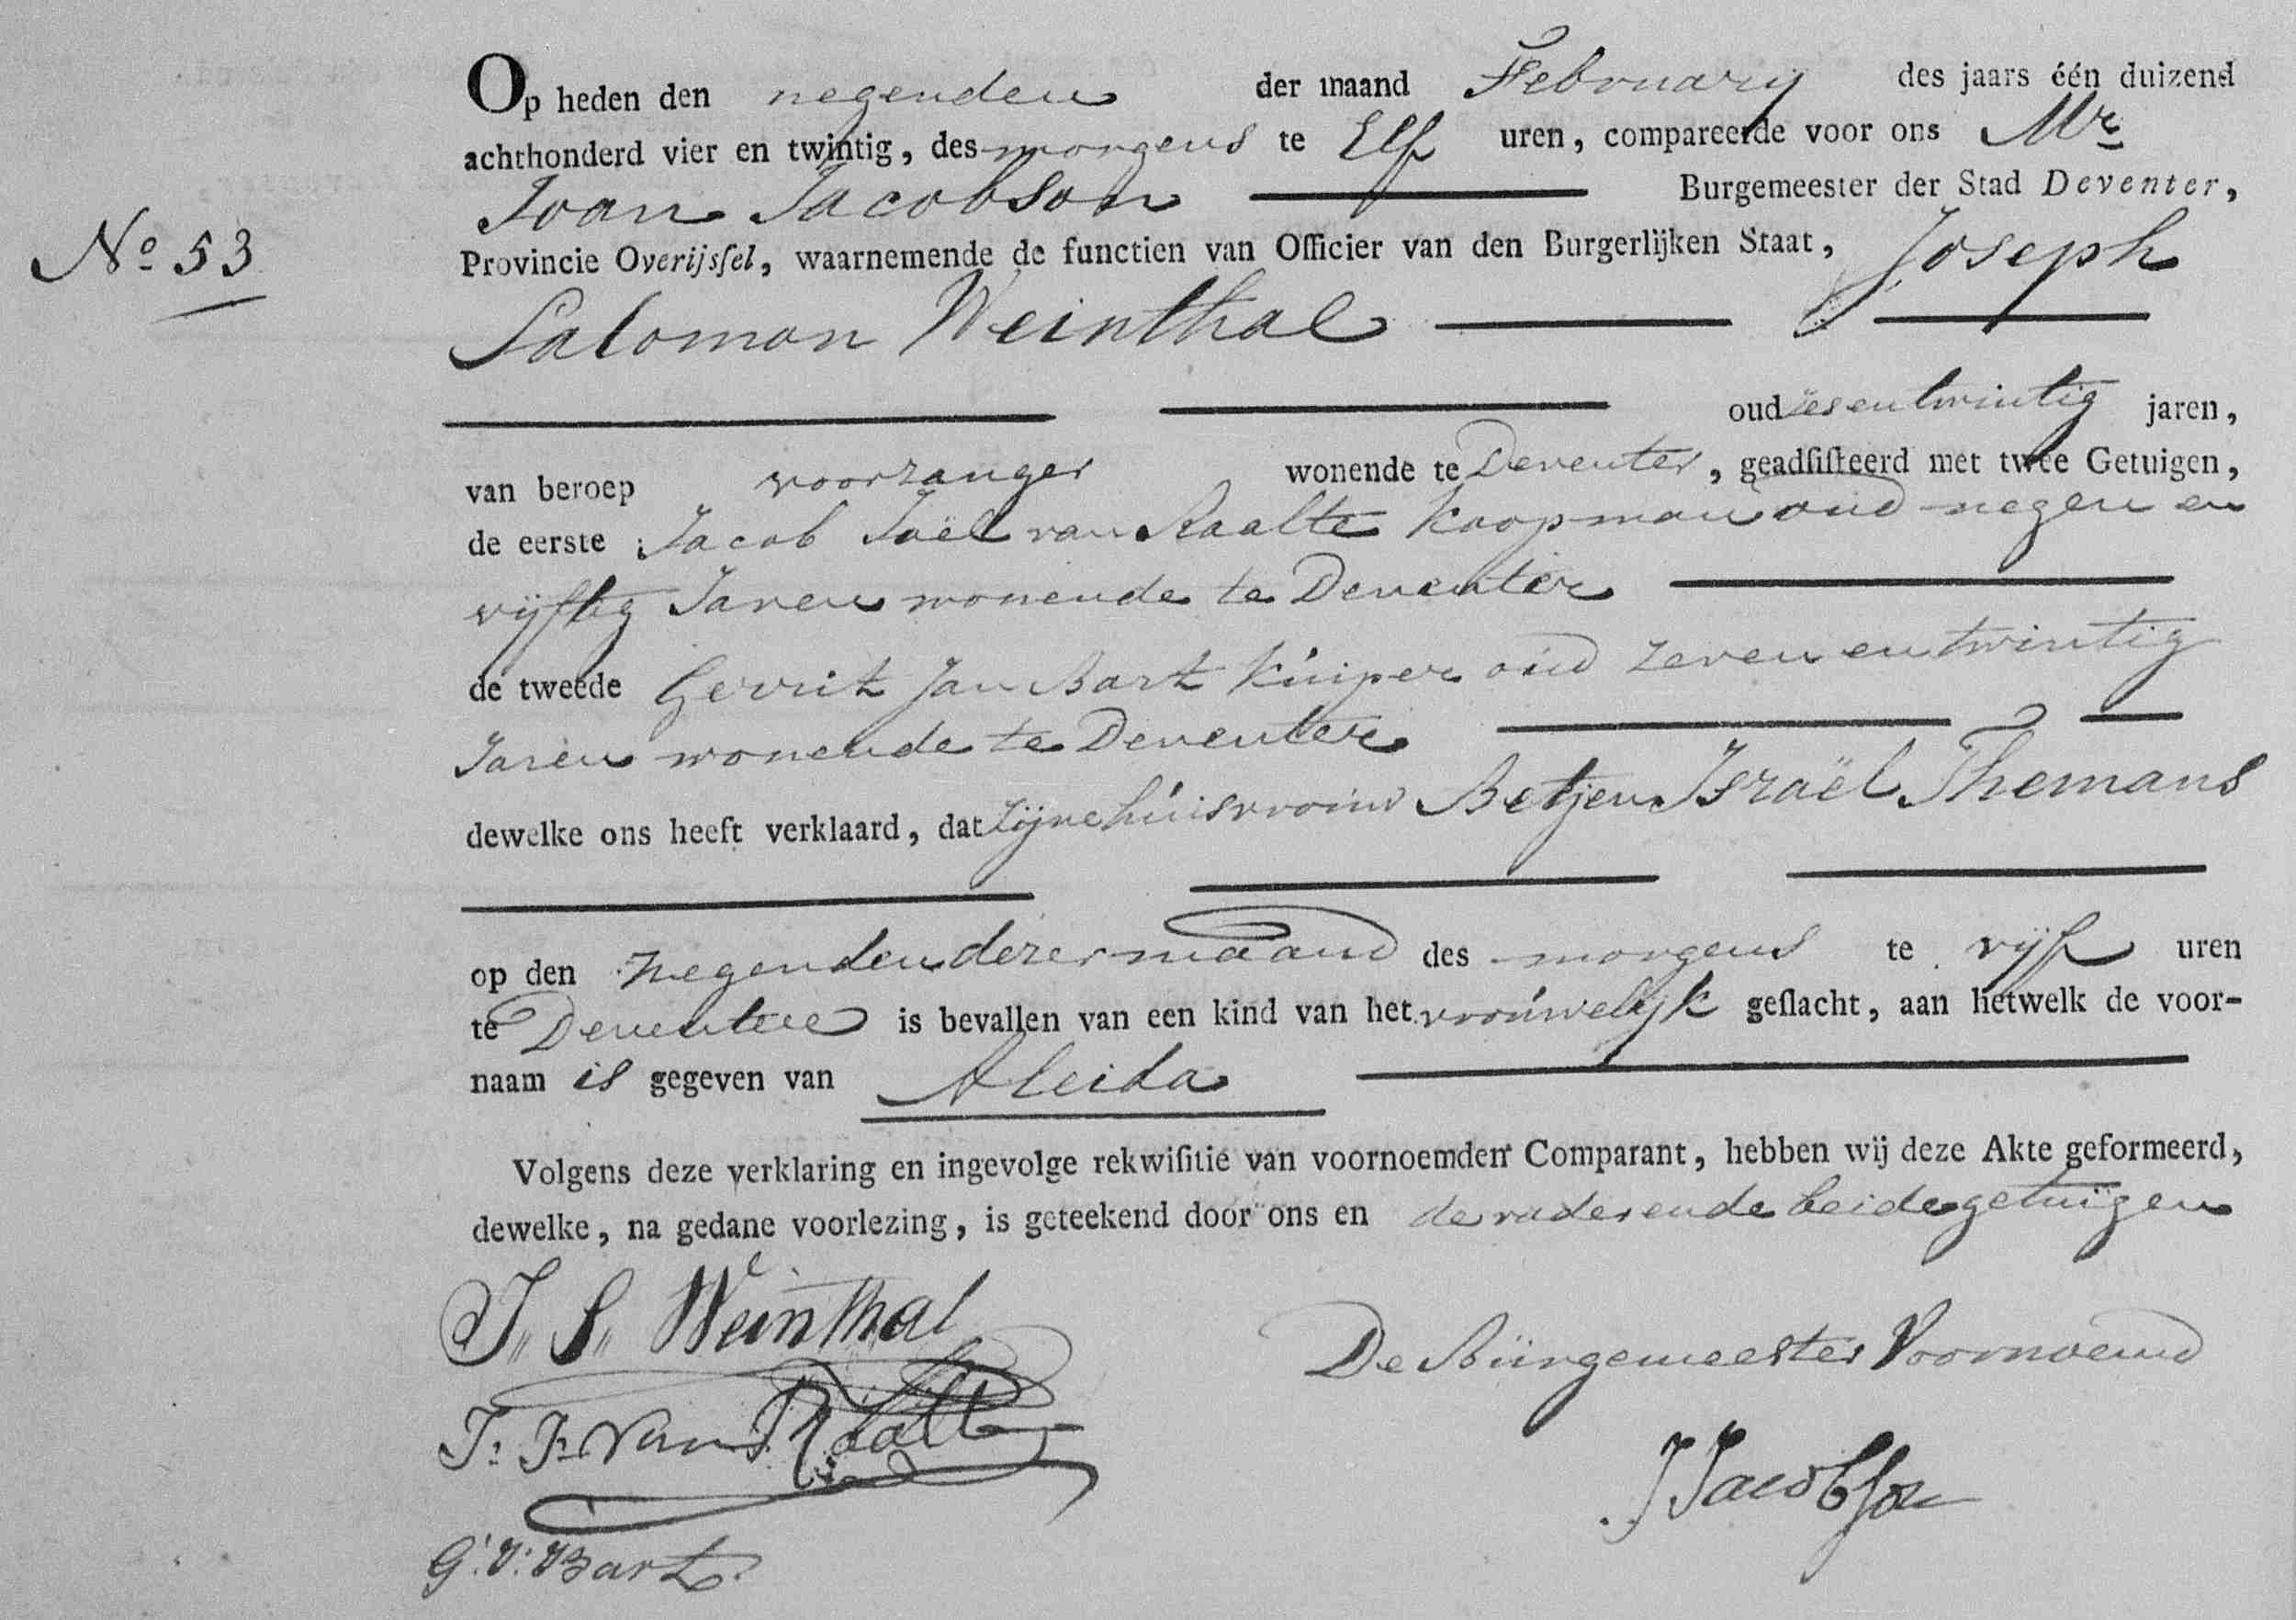 Op heden den negenden der maand February des jaars één duizend
achthonderd vier en twintig, des morgens te Elf uren, compareerde voor ons Mr
Joan Jacobson Burgemeester der Stad Deventer,
No 53
Provincie Overijsſel, waarnemende de functien van Officier van den Burgerlijken Staat, Joseph
Salomon Weinthal
oud zes en twintig jaren,
van beroep voorzanger wonende te Deventer, geadſiſteerd met twee Getuigen,
de eerste Jacob Joël van Raalte Koopman oud negen en
vijftig Jaren wonende te Deventer
de tweede Gerrit Jan Bart Kuiper oud zeven en twintig
Jaren wonende te Deventer
dewelke ons heeft verklaard, dat zijne huisvrouw Betjen Israël Themans
op den negenden dezer maand des morgens te vijf uren
te Deventer is bevallen van een kind van het vrouwelijk geſlacht, aan hetwelk de voor-
naam is gegeven van Aleida
Volgens deze verklaring en ingevolge rekwiſitie van voornoemden Comparant, hebben wij deze Akte geformeerd,
dewelke, na gedane voorlezing, is geteekend door ons en de vader ende beide getuigen
J. S. Weinthal
De Burgemeester Voornoemd
J. J. van Raalte
J Jacobson
G. J. Bart